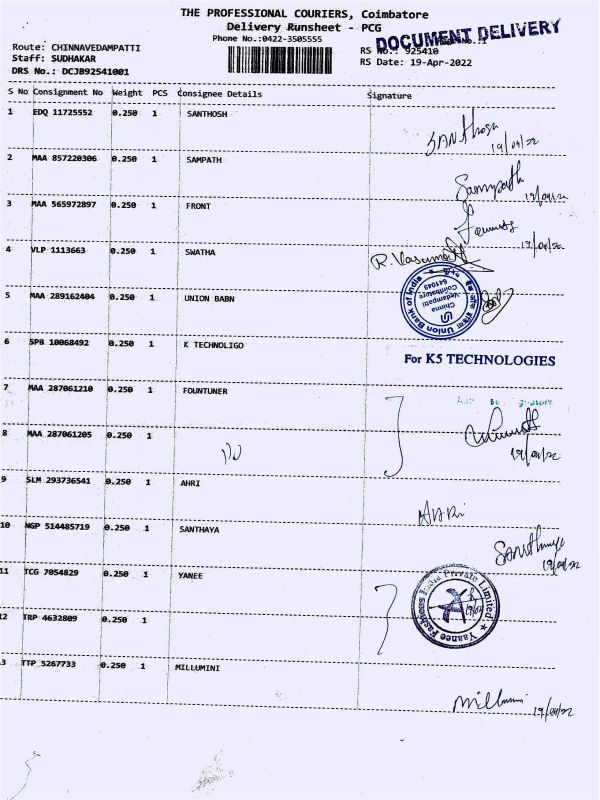 THE PROFESSIONAL COURIERS, Coimbatore
Delivery Runsheet - PCG
Phone No.:0422-3505555
DOCUMENT DELIVERY
Route: CHINNAVEDAMPATTI
Staff: SUDHAKAR
DRS No.: DCJB92541001
RS No.: 925410
RS Date: 19-Apr-2022
S No Consignment No Weight PCS Consignee Details Signature
1 EDQ 11725552 0.250 1 SANTHOSH
SANthosh
19/04/22
2 MAA 857220306 0.250 1 SAMPATH
Sampath
19/04/22
3 MAA 565972897 0.250 1 FRONT
19/04/22
4 VLP 1113663 0.250 1 SWATHA
R. Vasumathi
5 MAA 289162404 0.250 1 UNION BABN
Union Bank of India
Chinna
Vedampatti
Coimbatore
641049
6 SPB 10068492 0.250 1 K TECHNOLIGO
For K5 TECHNOLOGIES
7 MAA 287061210 0.250 1 FOUNTUNER
8 MAA 287061205 0.250 1
19/04/22
9 SLM 293736541 0.250 1 AHRI
AHRi
10 NGP 514485719 0.250 1 SANTHAYA
19/04/22
11 TCG 7054829 0.250 1 YANEE
Yaanee Fashions India Private Limited
12 TRP 4632809 0.250 1
13 TTP 5267733 0.250 1 MILLUMINI
Millumini
19/04/22